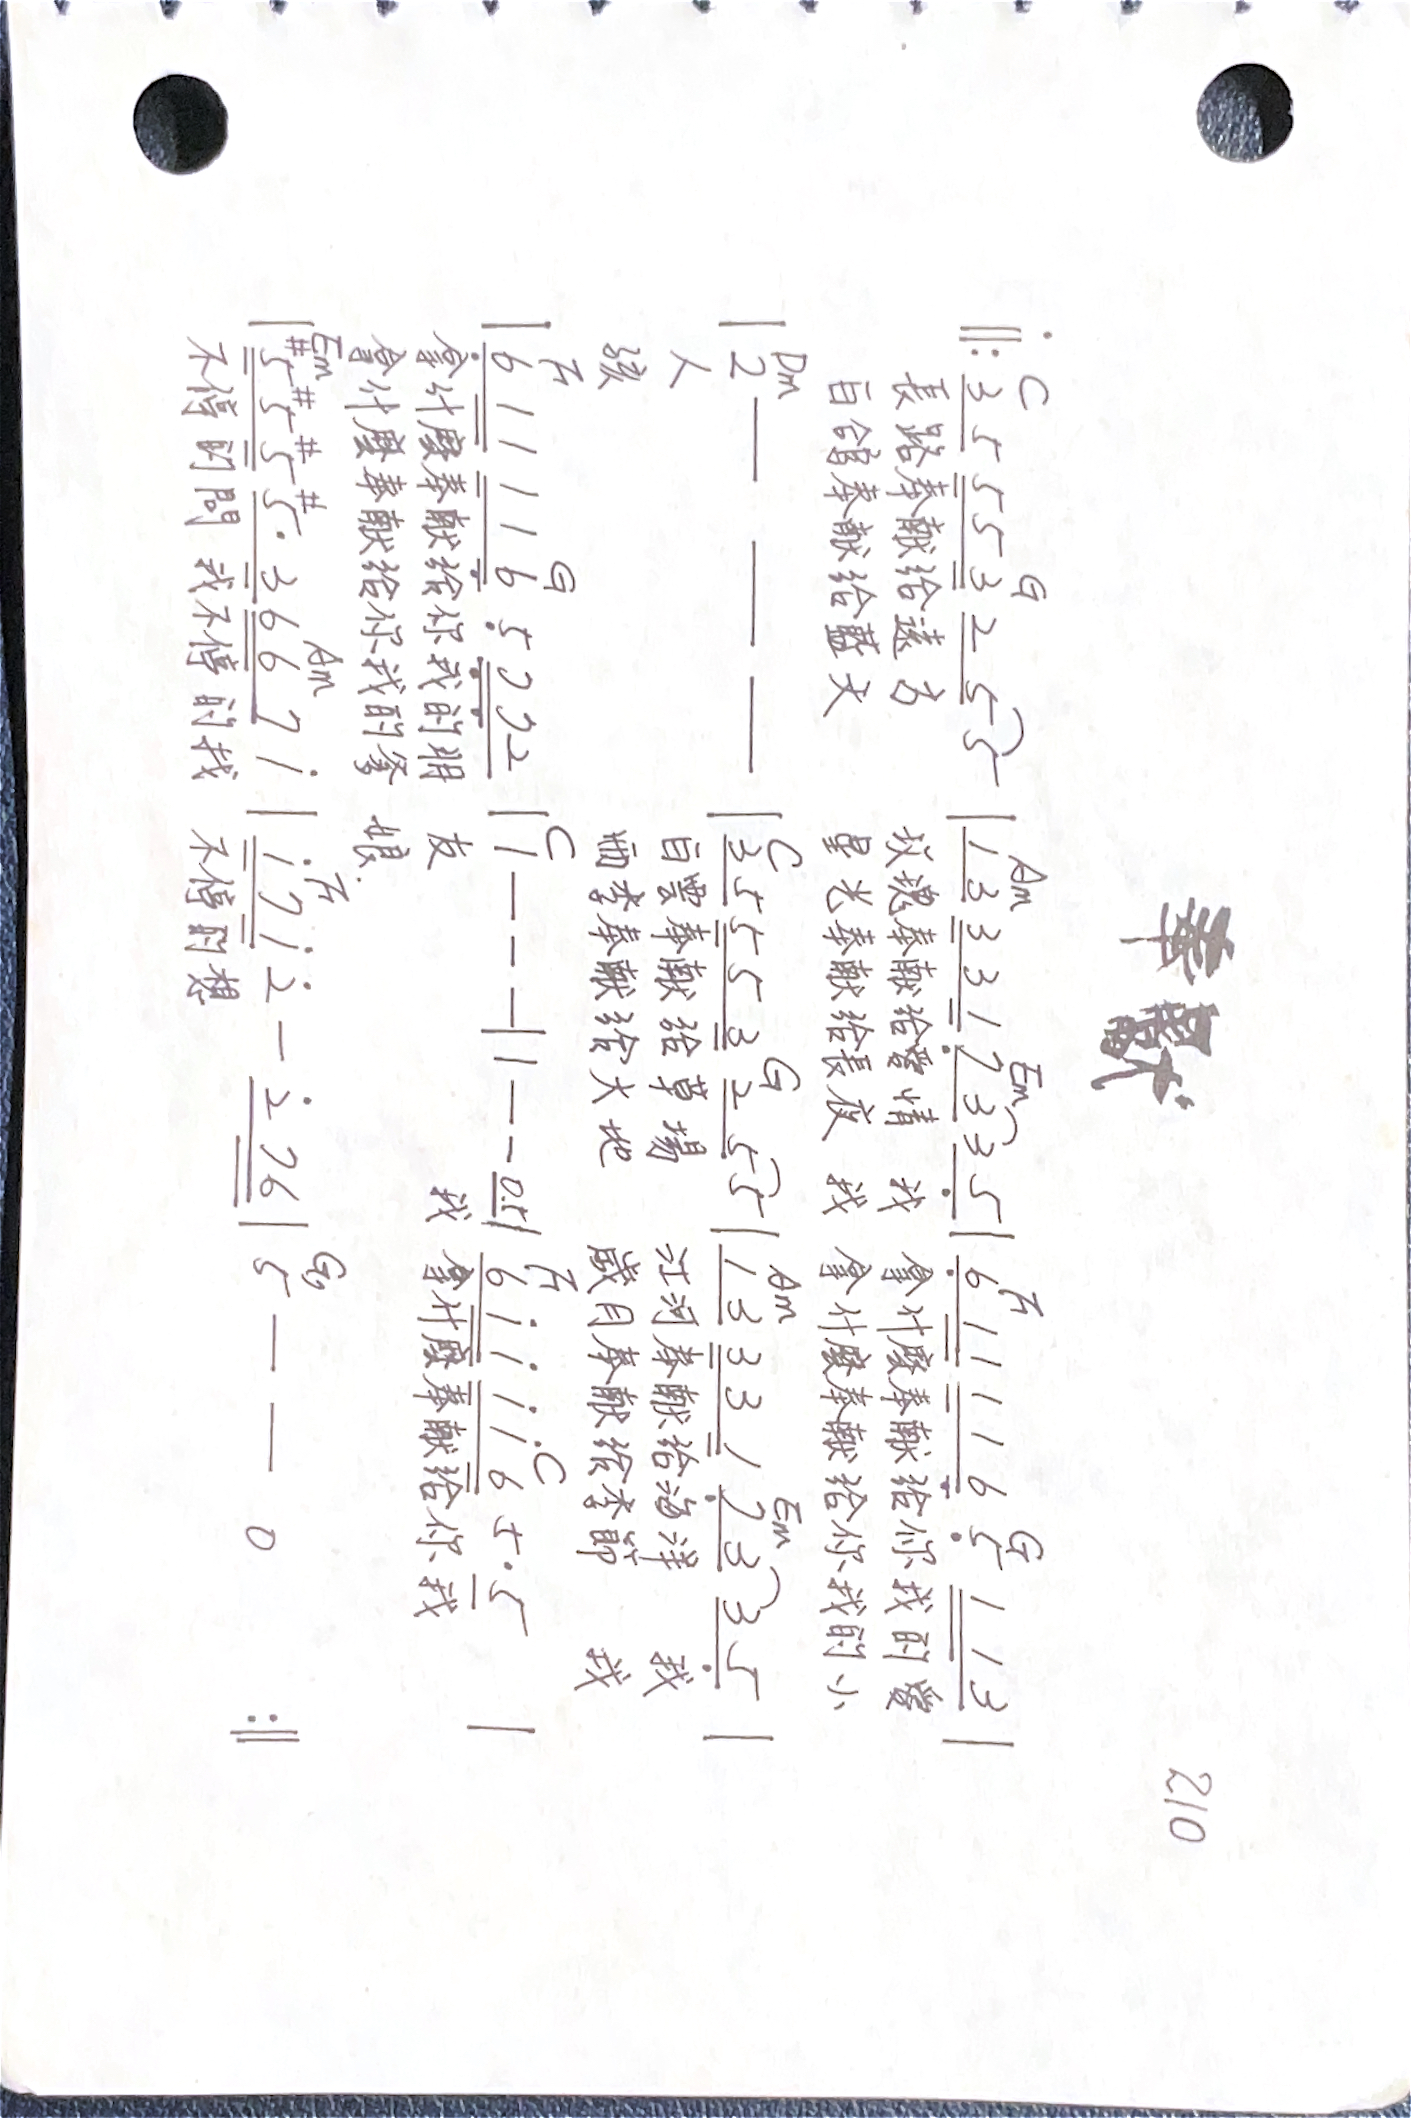 奉獻
210
C G Am Em F G
‖: 3 5 5 5 3 2 5 5 | 1 3 3 3 1 7 3 3 5 | 6 1 1 1 1 6 5 1 1 3 |
長路奉献給遠方 玫瑰奉献給愛情 我 拿什麼奉献給你我的愛
白鴿奉献給藍天 星光奉献給長夜 我 拿什麼奉献給你我的小
Dm C G Am Em
| 2 — — — | 3 5 5 5 3 2 5 5 | 1 3 3 3 1 7 3 3 5 |
人 白雲奉献給草場 江河奉献給海洋 我
孩 雨季奉献給大地 歲月奉献給季節 我
F G C F C
| 6 1 1 1 1 6 5 7 7 2 | 1 — — — | 1 — — 0.5 | 6 i i i i 6 5 · 5 |
拿什麼奉献給你我的朋 友 我 拿什麼奉献給你我
拿什麼奉献給你我的爹 娘.
Em Am F G7
| #5 #5 #5 #5 · 3 6 6 7 i | i 7 i 2̇ — 2̇ 7 6 | 5 — — 0 :‖
不停的問 我不停的找 不停的想